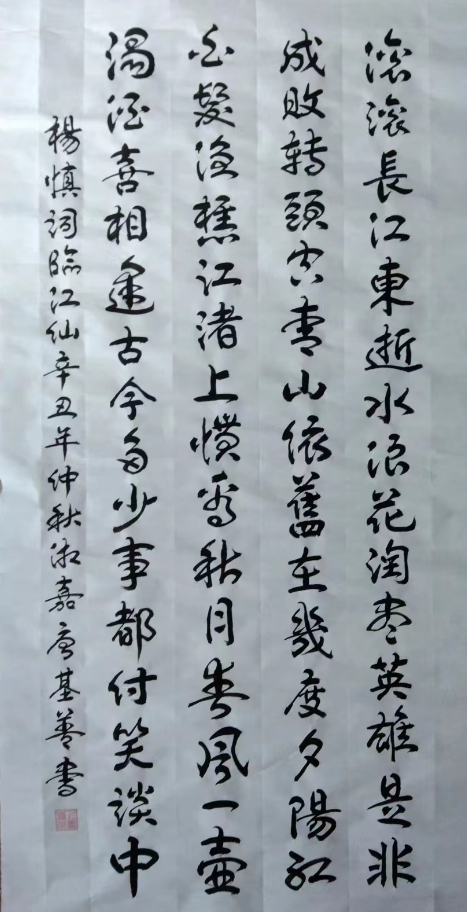 滚滚長江東逝水浪花淘尽英雄是非
成敗轉頭空青山依舊在幾度夕陽紅
白髮渔樵江渚上慣看秋月春風一壺
濁酒喜相逢古今多少事都付笑談中
楊慎詞臨江仙辛丑年仲秋淑嘉唐基善書